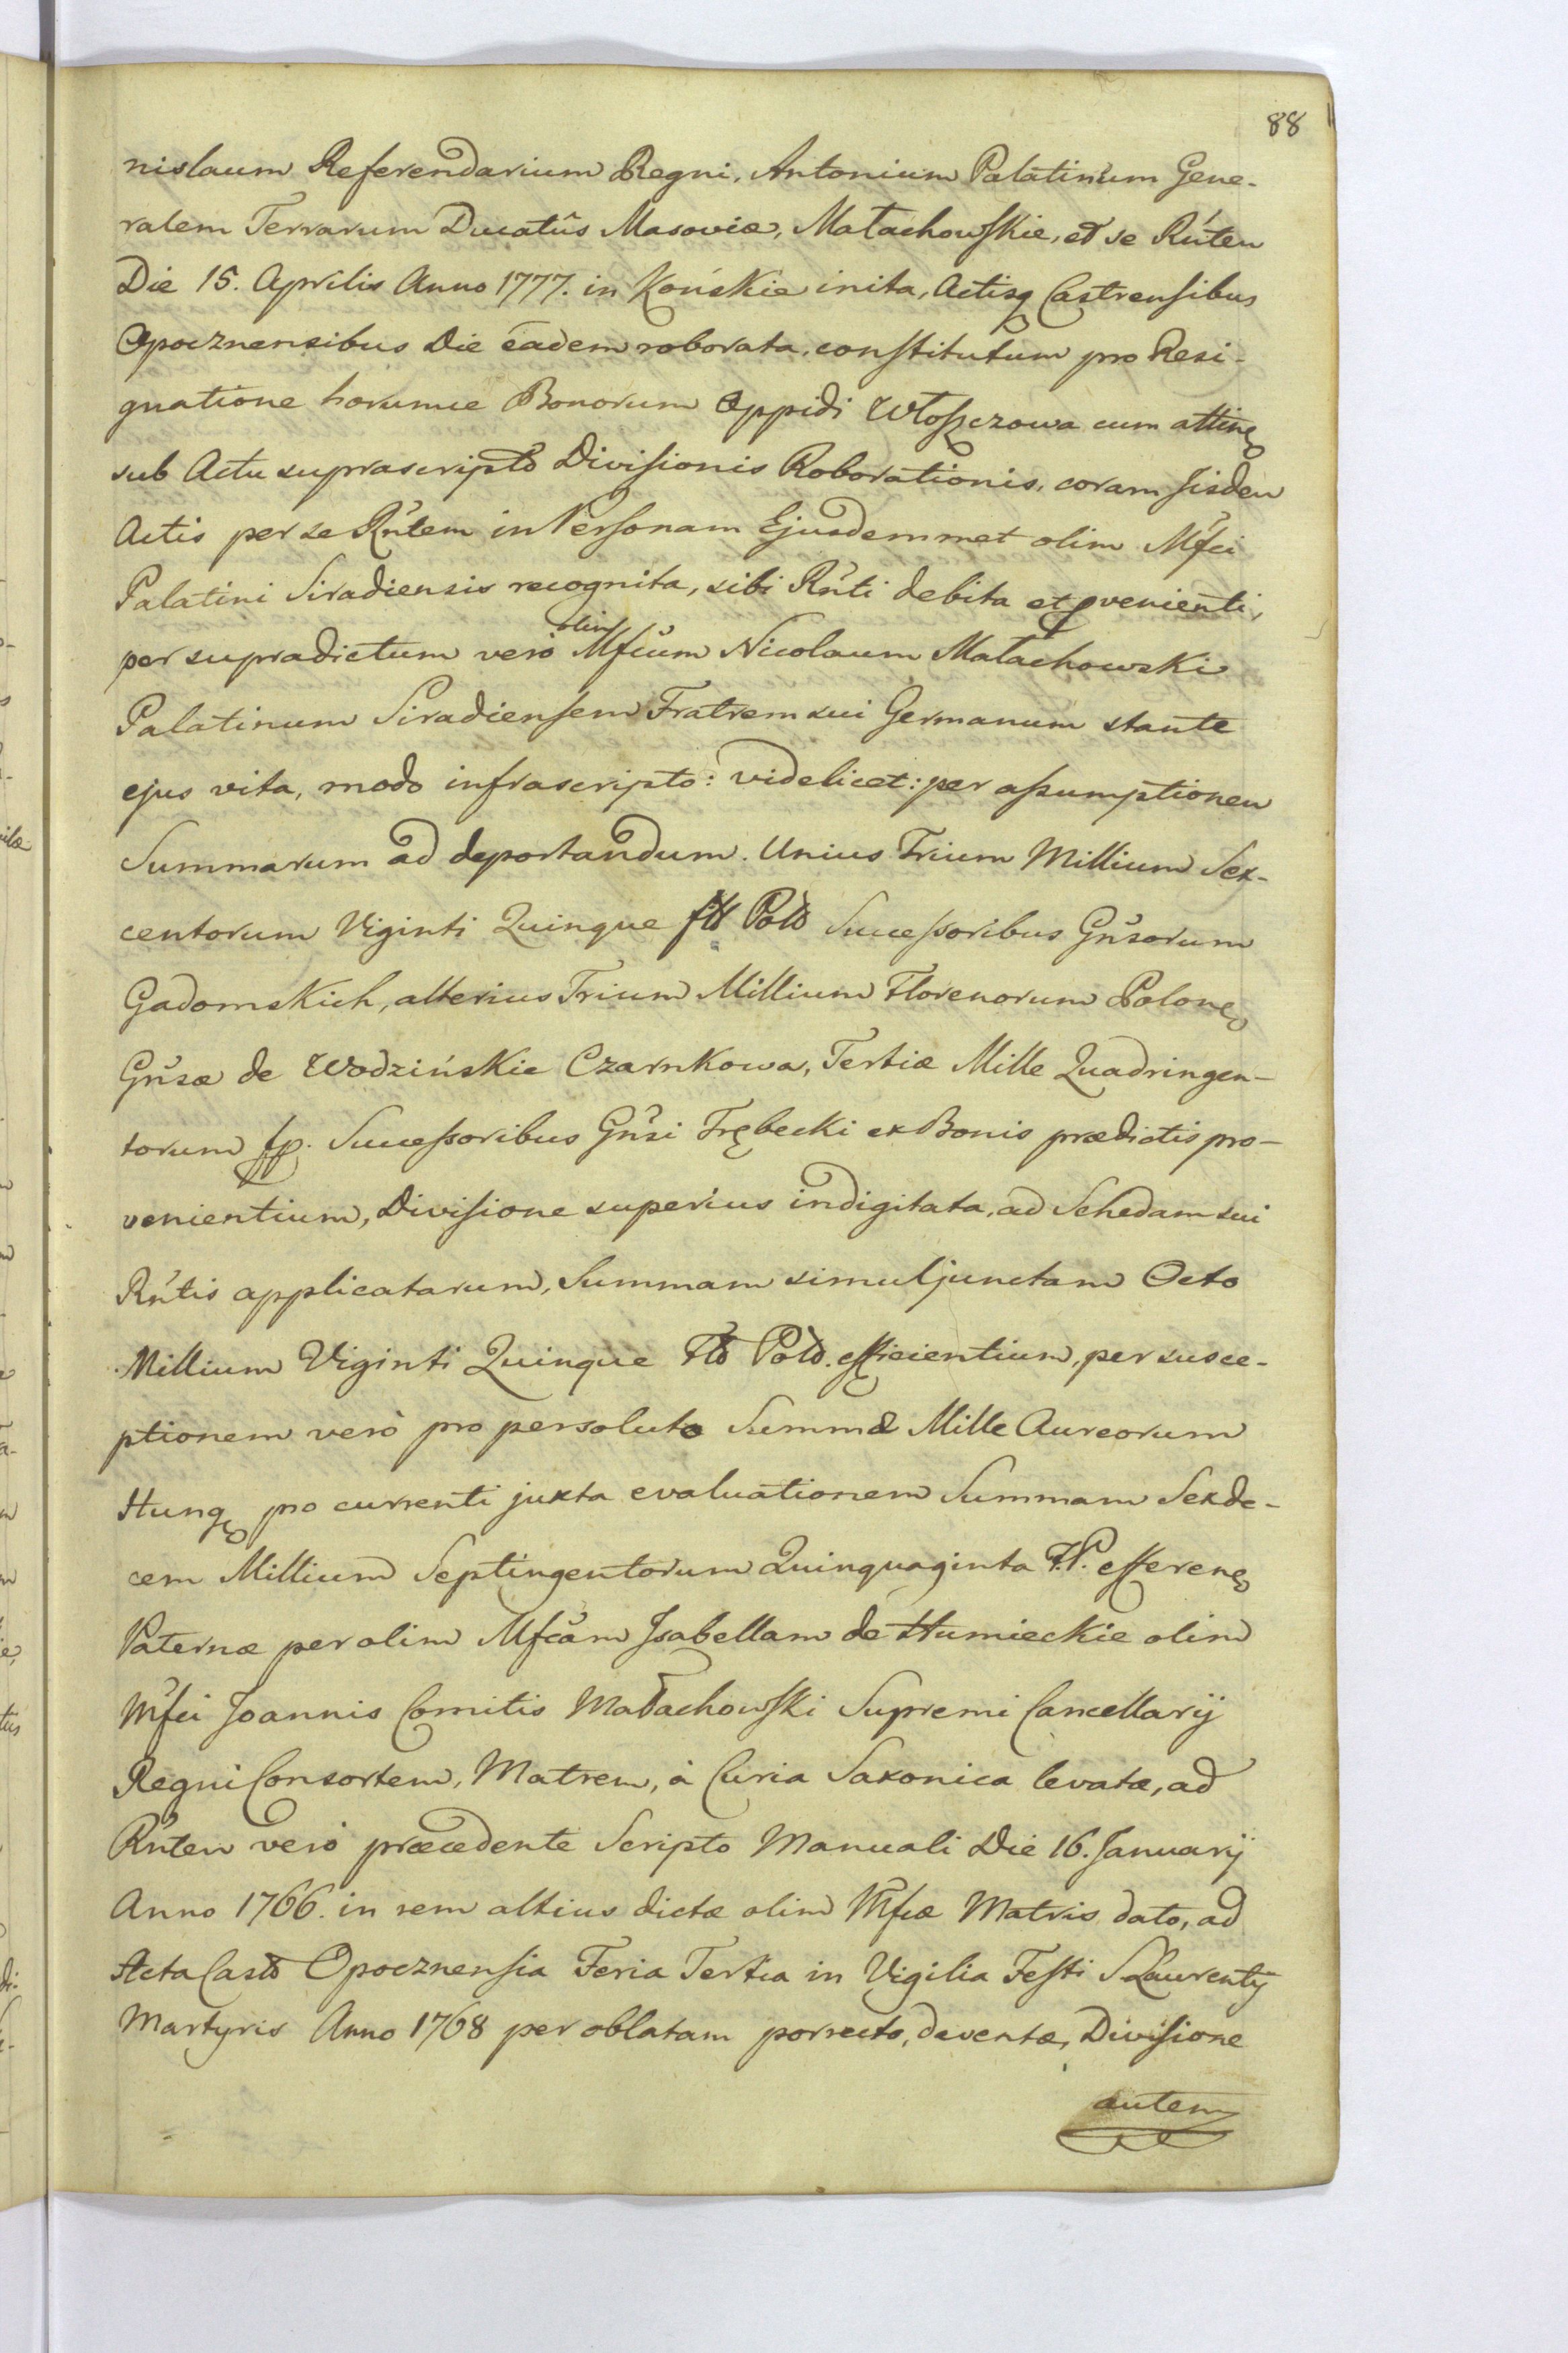 88
nislaum Referendarium Regni, Antonium Palatinum Gene-
ralem Terrarum Ducatûs Masoviæ, Małachowskie, et se Rńtem
Die 15. Aprilis Anno 1777. in Końskie inita, Actisq Castrensibus
Opocznensibus Die eâdem roborata, constitutum pro Resi-
gnatione horumce Bonorum Oppidi Włoszczowa cum attine
sub Actu suprascripto Divisionis Roborationis, coram Iisdem
Actis per se Rńtem in Personam Ejusdemmet olim Mfci
Palatini Siradiensis recognita, sibi Rńti debita et pvenienti,
per supradictum verò olim Mfcum Nicolaum Małachowski
Palatinum Siradiensem Fratrem sui Germanum stante
ejus vita, modo infrascripto: videlicet: per assumptionem
Summarum ad deportandum. Unius Trium Millium Sex-
centorum Viginti Quinque fl Pol Successoribus Gńsorum
Gadomskich, alterius Trium Millium Florenorum Polone
Gńsæ de Wodzińskie Czarnkowa, Tertiæ Mille Quadringen-
torum fp. Successoribus Gńsi Trębecki ex Bonis prædictis pro-
venientium, Divisione superius indigitata, ad Schedam sui
Rńtis applicatarum, Summam simul junctam Octo
Millium Viginti Quinque Fl Pol. efficientium, per susce-
ptionem verò pro persoluto Summæ Mille Aureorum
Hung pro currenti juxta evaluationem Summam Sexde-
cem Millium Septingentorum Quinquaginta F.P. efferen
Paternæ per olim Mfcam Isabellam de Humieckie olim
Mfci Joannis Comitis Małachowski Supremi Cancellarij
Regni Consortem, Matrem, à Curia Saxonica levatæ, ad
Rńtem verò præcedente Scripto Manuali Die 16. Januarij
Anno 1766. in rem altius dictæ olim Mfcæ Matris dato, ad
Acta Cast Opocznensia Feria Tertia in Vigilia Festi S Laurentij
Martyris Anno 1768 per oblatam porrecto, deventæ, Divisione
autem